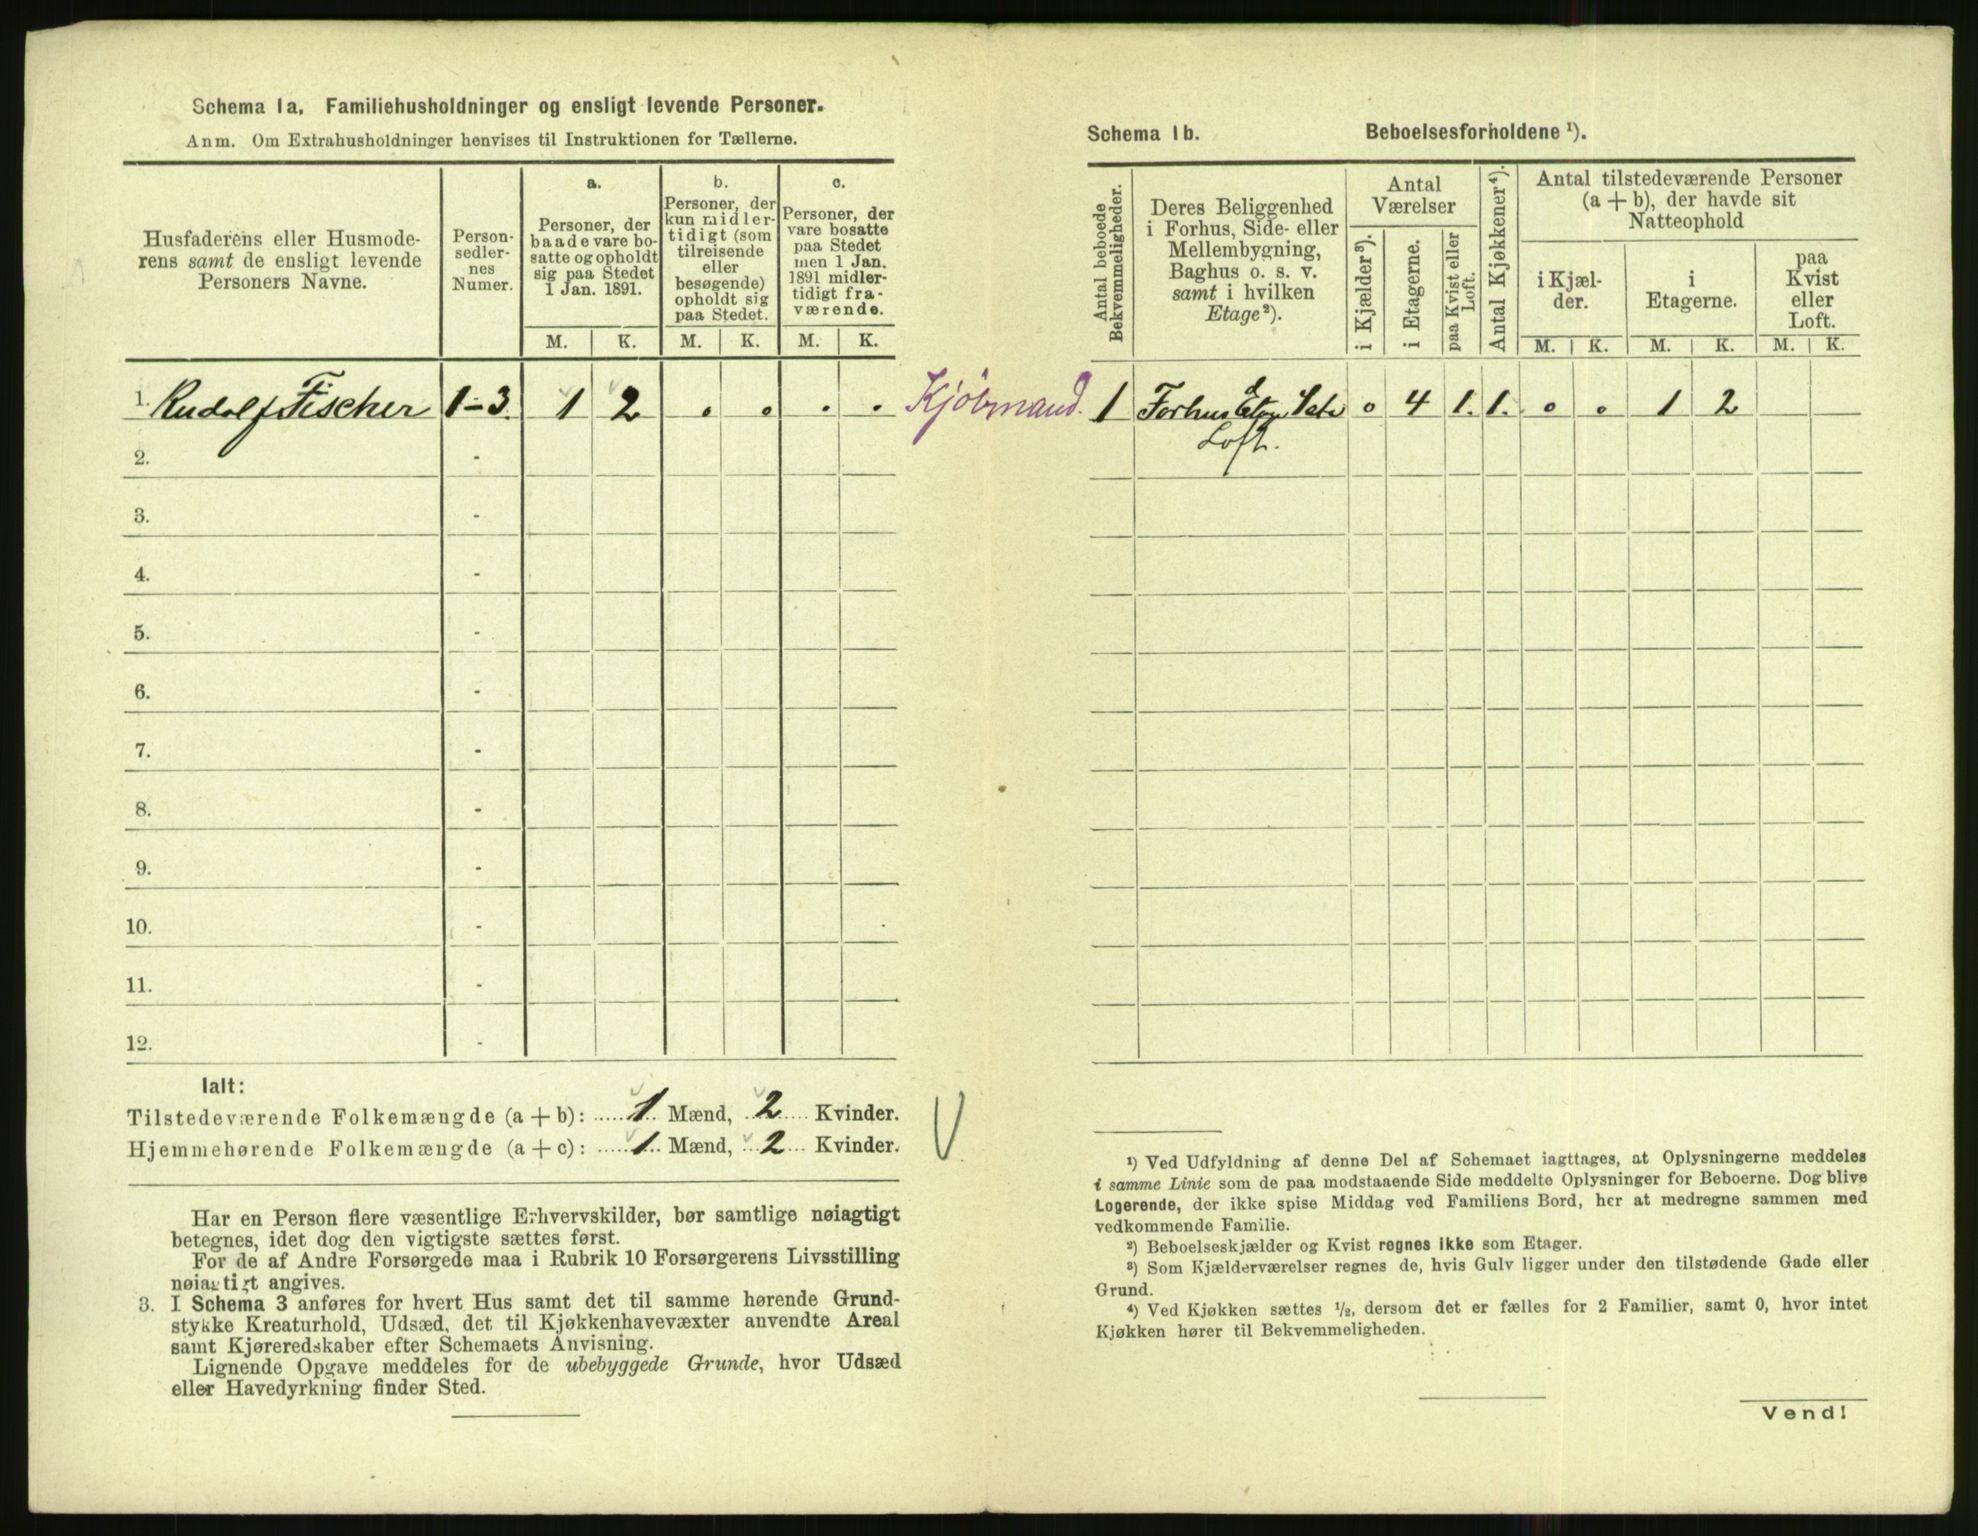 Schema 1a. Familiehusholdninger og ensligt levende Personer.
Anm. Om Extrahusholdninger henvises til Instruktionen for Tællerne.
Husfaderens eller Husmode-
rens samt de ensligt levende
Personers Navne.
Person-
sedler-
nes
Numer.
a.
Personer, der
baade vare bo-
satte og opholdt
sig paa Stedet
1 Jan. 1891.
b.
Personer, der
kun midler-
tidigt (som
tilreisende
eller
besøgende)
opholdt sig
paa Stedet.
c.
Personer, der
vare bosatte
paa Stedet
men 1 Jan.
1891 midler-
tidigt fra-
værende.
M. K. M. K. M. K.
1. Rudolf Fischer 1-3. 1 2 . . . . Kjöbmand.
2. -
3. -
4. -
5. -
6. -
7. -
8. -
9. -
10. -
11. -
12. -
Ialt:
Tilstedeværende Folkemængde (a + b): 1 Mænd, 2 Kvinder.
Hjemmehørende Folkemængde (a + c): 1 Mænd, 2 Kvinder.
V
Har en Person flere væsentlige Erhvervskilder, bør samtlige nøiagtigt
betegnes, idet dog den vigtigste sættes først.
For de af Andre Forsørgede maa i Rubrik 10 Forsørgerens Livsstilling
nøiagtigt angives.
3. I Schema 3 anføres for hvert Hus samt det til samme hørende Grund-
stykke Kreaturhold, Udsæd, det til Kjøkkenhavevæxter anvendte Areal
samt Kjøreredskaber efter Schemaets Anvisning.
Lignende Opgave meddeles for de ubebyggede Grunde, hvor Udsæd
eller Havedyrkning finder Sted.
Schema 1b. Beboelsesforholdene ¹).
Antal beboede
Bekvemmeligheder.
Deres Beliggenhed
i Forhus, Side- eller
Mellembygning,
Baghus o. s. v.
samt i hvilken
Etage²).
Antal
Værelser
i Kjælder³).
i Etagerne.
paa Kvist eller
Loft.
Antal Kjøkkener⁴).
Antal tilstedeværende Personer
(a + b), der havde sit
Natteophold
i Kjæl-
der.
i
Etagerne.
paa
Kvist
eller
Loft.
M. K. M. K. M. K.
1 Forhus 0 4 1. 1. 0 0 1 2
Loft.
¹) Ved Udfyldning af denne Del af Schemaet iagttages, at Oplysningerne meddeles
i samme Linie som de paa modstaaende Side meddelte Oplysninger for Beboerne. Dog blive
Logerende, der ikke spise Middag ved Familiens Bord, her at medregne sammen med
vedkommende Familie.
²) Beboelseskjælder og Kvist regnes ikke som Etager.
³) Som Kjælderværelser regnes de, hvis Gulv ligger under den tilstødende Gade eller
Grund.
⁴) Ved Kjøkken sættes ½, dersom det er fælles for 2 Familier, samt 0, hvor intet
Kjøkken hører til Bekvemmeligheden.
Vend!